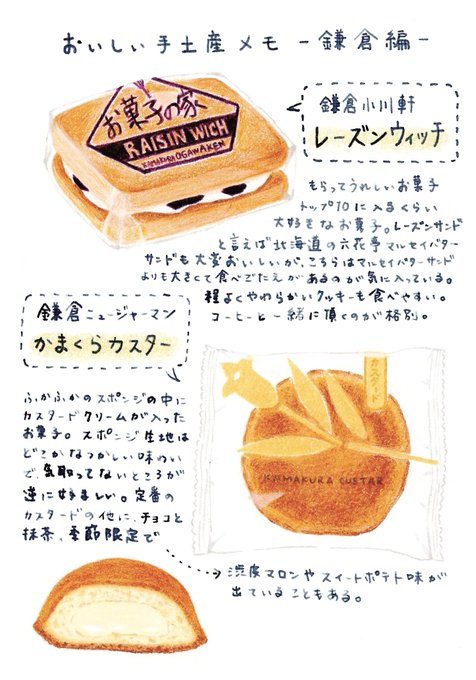 おいしい手土産メモ -鎌倉編-
お菓子の家
RAISIN WICH
KAMAKURA OGAWAKEN
鎌倉小川軒
レーズンウィッチ
もらってうれしいお菓子
トップ10に入るくらい
大好きなお菓子。レーズンサンド
と言えば北海道の六花亭マルセイバター
サンドも大変おいしいが、こちらはマルセイバターサンド
よりも大きくて食べごたえがあるのが気に入っている。
程よくやわらかいクッキーも食べやすい。
コーヒーと一緒に頂くのが格別。
鎌倉ニュージャーマン
かまくらカスター
ふかふかのスポンジの中に
カスタードクリームが入った
お菓子。スポンジ生地は
どこかなつかしい味わい
で、気取ってないところが
逆に好ましい。定番の
カスタードの他に、チョコと
抹茶、季節限定で
渋皮マロンやスイートポテト味が
出ていることもある。
カスタード
KAMAKURA CUSTAR